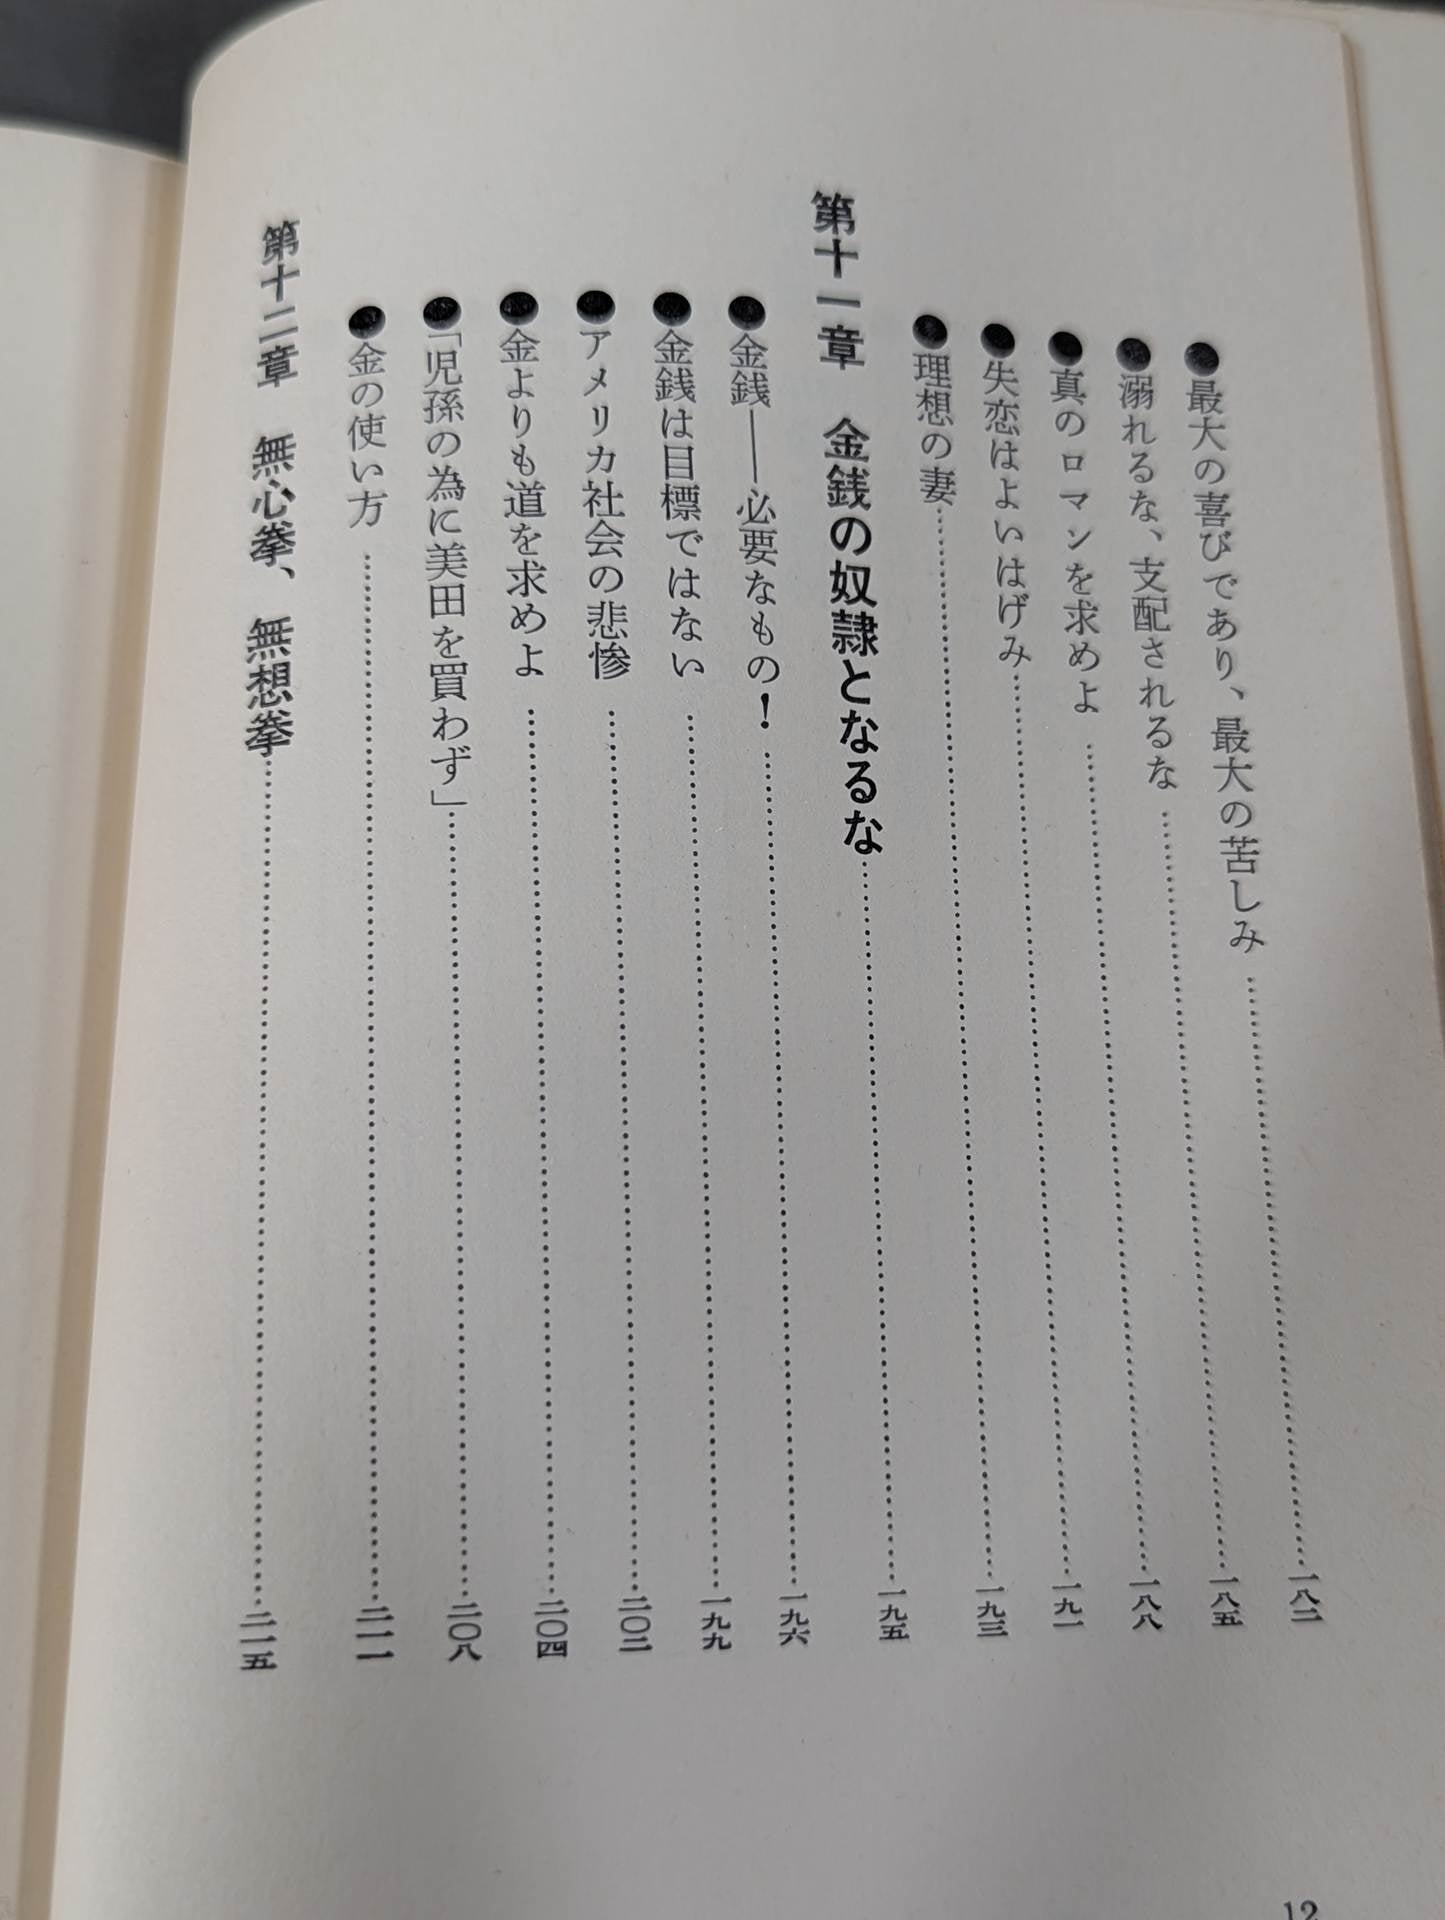 ●最大の喜びであり、最大の苦しみ……一八二
●溺れるな、支配されるな……一八五
●真のロマンを求めよ……一八八
●失恋はよいはげみ……一九一
●理想の妻……一九三
第十一章　金銭の奴隷となるな……一九五
●金銭――必要なもの！……一九六
●金銭は目標ではない……一九九
●アメリカ社会の悲惨……二〇二
●金よりも道を求めよ……二〇四
●「児孫の為に美田を買わず」……二〇八
●金の使い方……二一一
第十二章　無心拳、無想拳……二一五
12